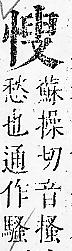 㥰
蘇操切音搔
愁也通作騷